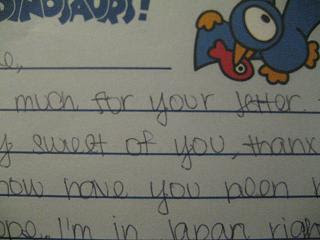 DINOSAURS!
e,
much for your letter.
y sweet of you, thank
how have you been
ope. I'm in Japan righ